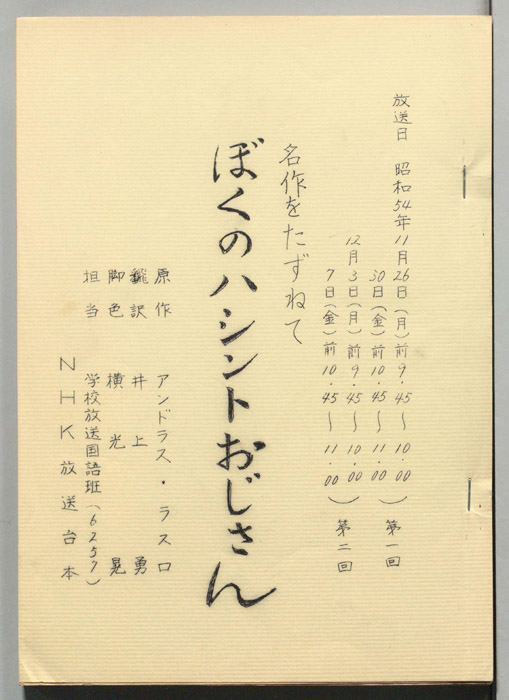 放送日 昭和54年11月26日(月)前9・45〜10・00
30日(金)前10・45〜11・00
第一回
12月3日(月)前9・45〜10・00
7日(金)前10・45〜11・00
第二回
名作をたずねて
ぼくのハシントおじさん
原作 アンドラス・ラスロ
飜訳 井上 勇
脚色 横光 晃
担当 学校放送国語班(6257)
NHK放送台本